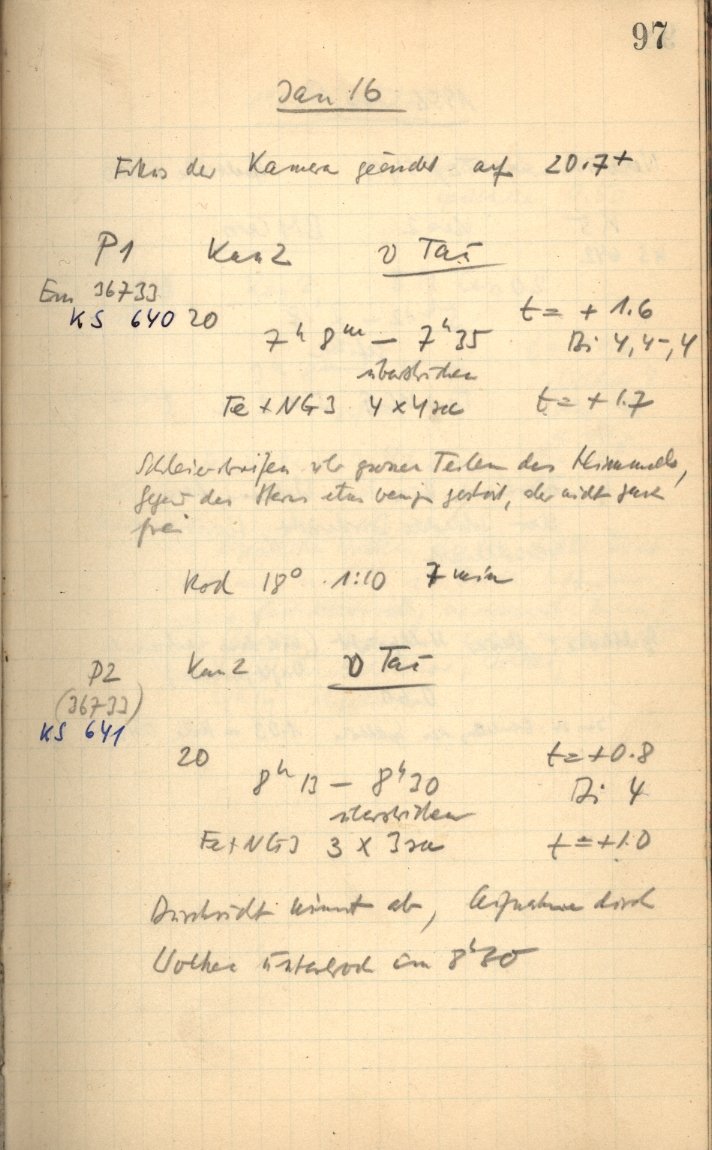 97
Jan 16
Fokus der Kamera geändert auf 20.7+
P1 Kam 2 υ Tau
Em 36733
KS 640 20 t = + 1.6
7h 8m — 7h 35 Bi 4,4-,4
überstrichen
Fe + NG3 4 x 4 sec t = + 1.7
Schleierstreifen über grossen Teilen des Himmels,
Gegend des Sterns etwas weniger gestört, aber nicht ganz
frei
Rod 18° 1:10 7 min
P2 Kam 2 υ Tau
(36733)
KS 641
20 t = +0.8
8h 13 — 8h 30 Bi 4
überstrichen
Fe + NG3 3 x 3 sec t = +1.0
Durchsicht nimmt ab, Aufnahme durch
Wolken unterbroch um 8h 30